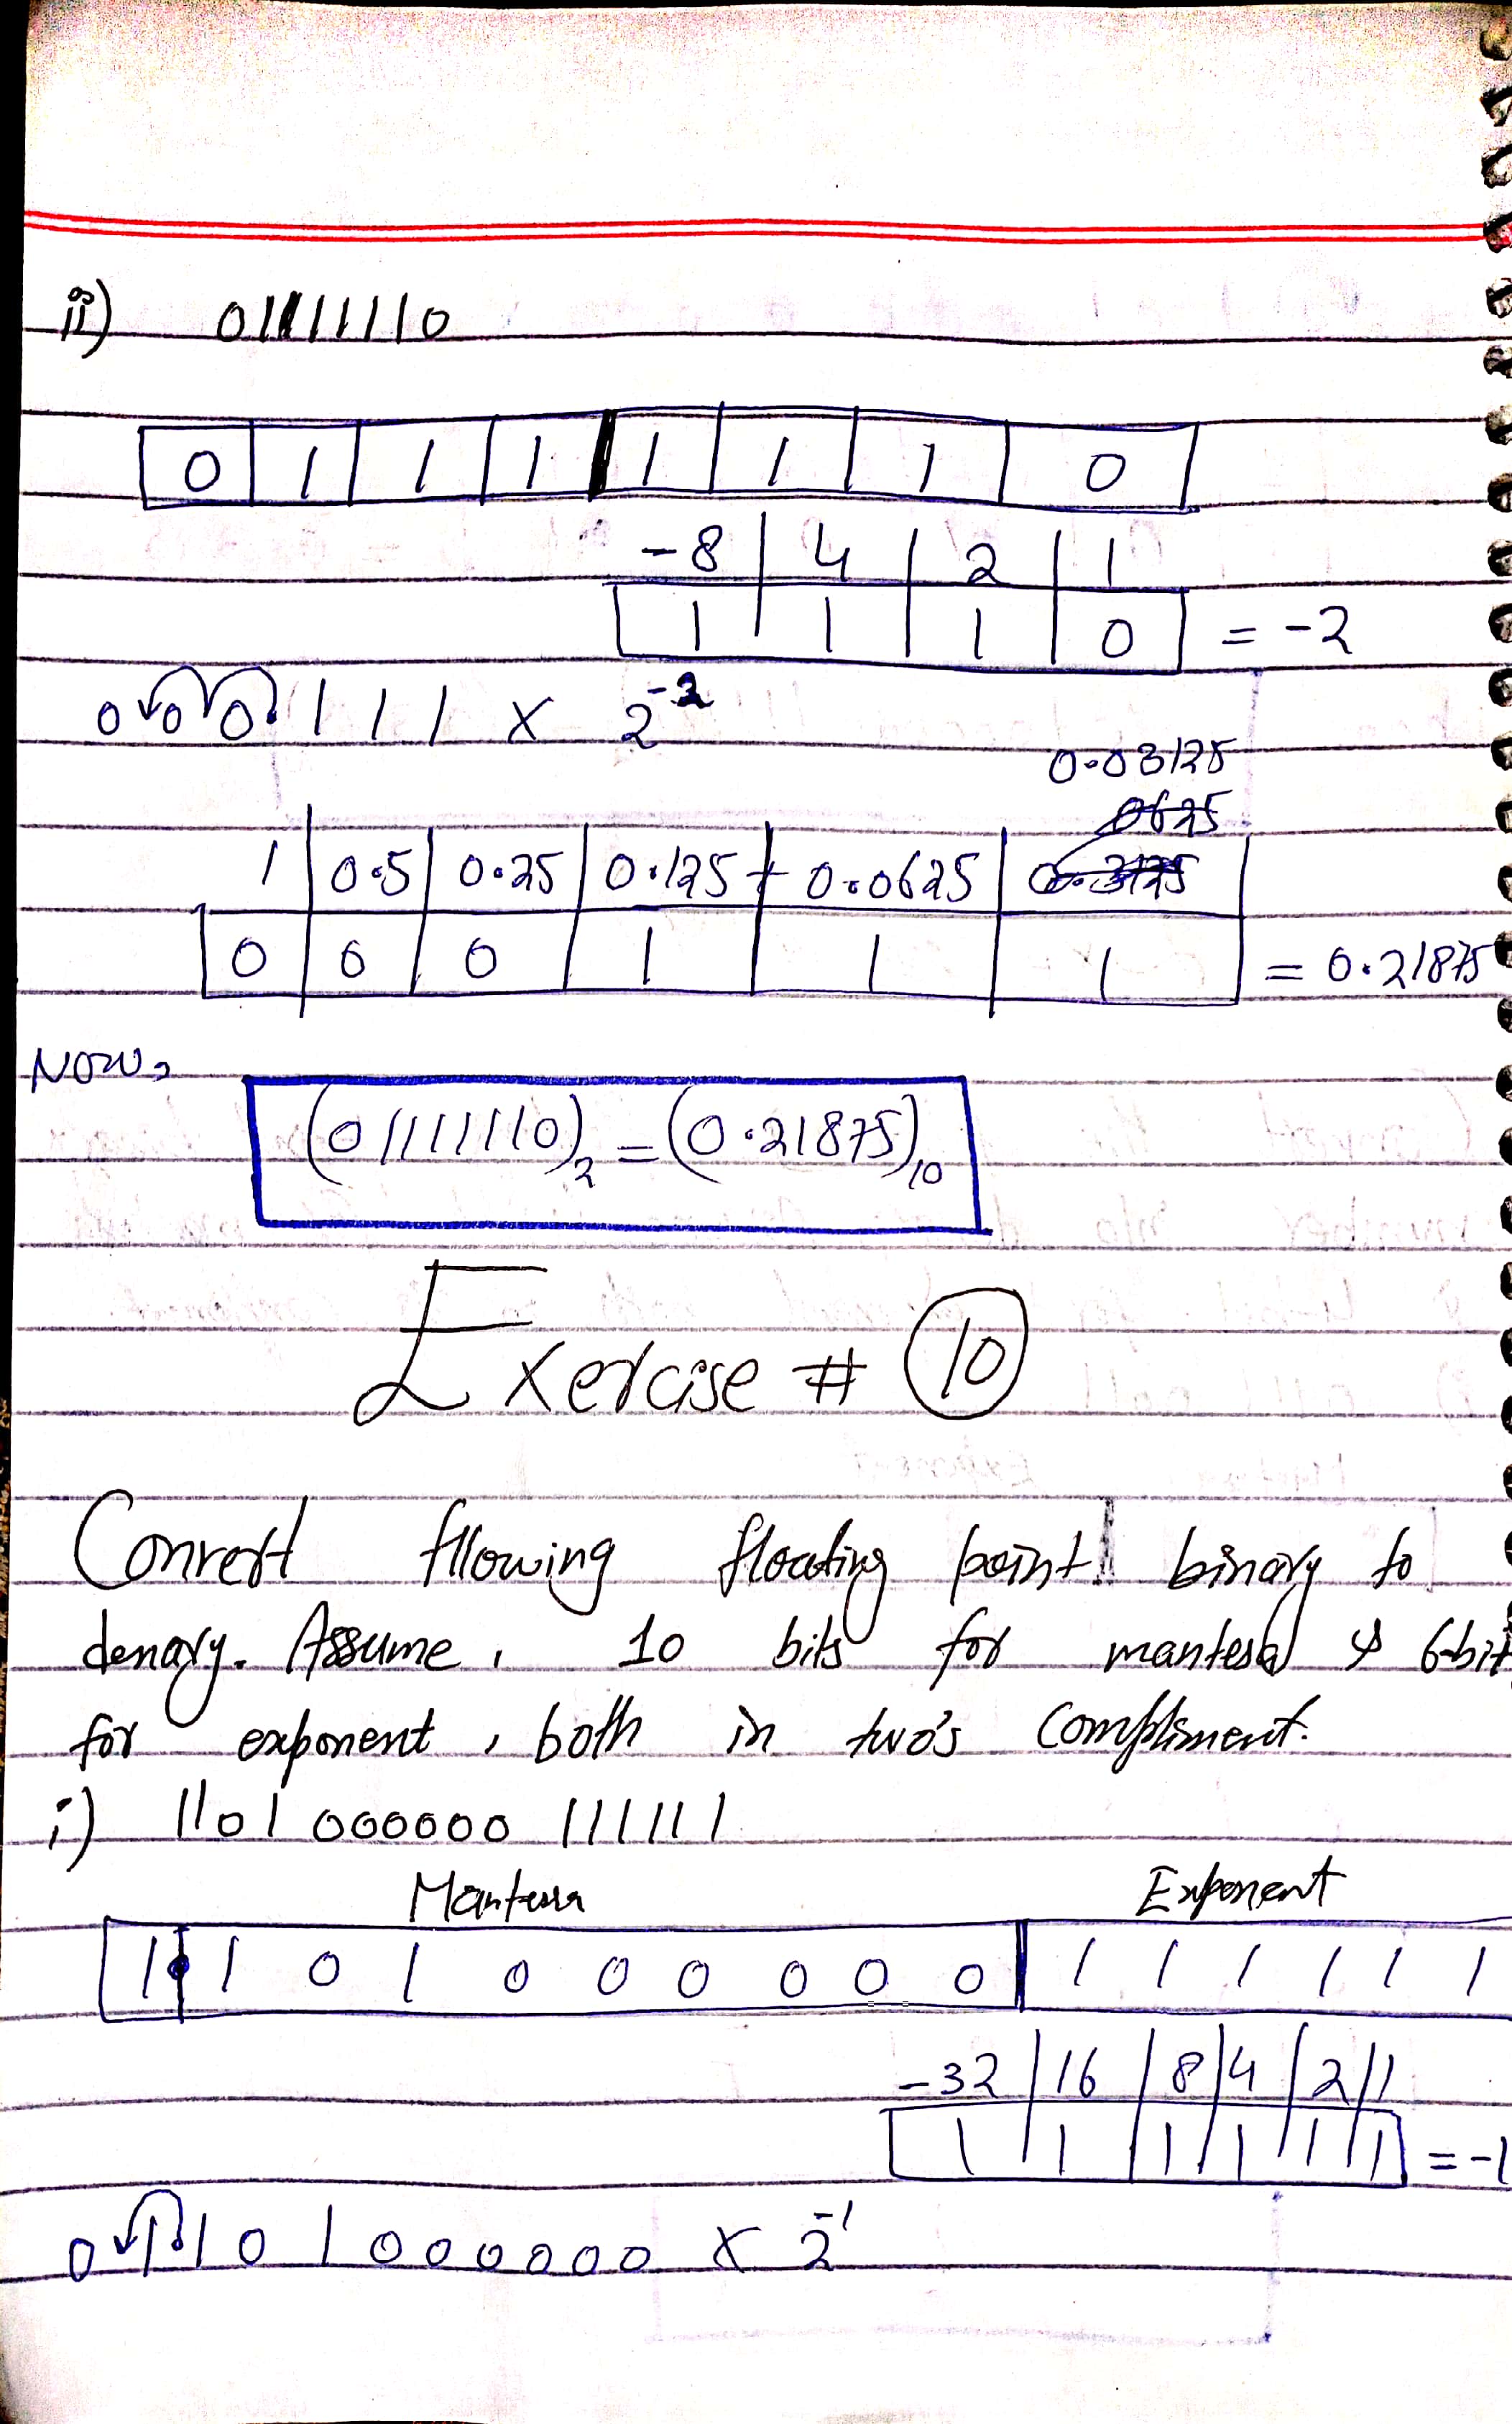 ii) 01111110
0 1 1 1 1 1 1 0
-8 4 2 1
1 1 1 0 = -2
0 0 0.111 x 2^-2
0.03125
0625
1 0.5 0.25 0.125 + 0.0625 0.3125
0 0 0 1 1 1 = 0.21875
Now,
(01111110)₂ = (0.21875)₁₀
Exercise # 10
Convert fllowing floating point binary to
denary. Assume, 10 bits for mantesa & 6-bit
for exponent, both in two's compliment.
i) 1101 000000 111111
Mantessa Exponent
1.1 0 1 0 0 0 0 0 0 1 1 1 1 1 1
-32 16 8 4 2 1
1 1 1 1 1 1 = -1
0 1.1 0 1 0 0 0 0 0 0 x 2^-1